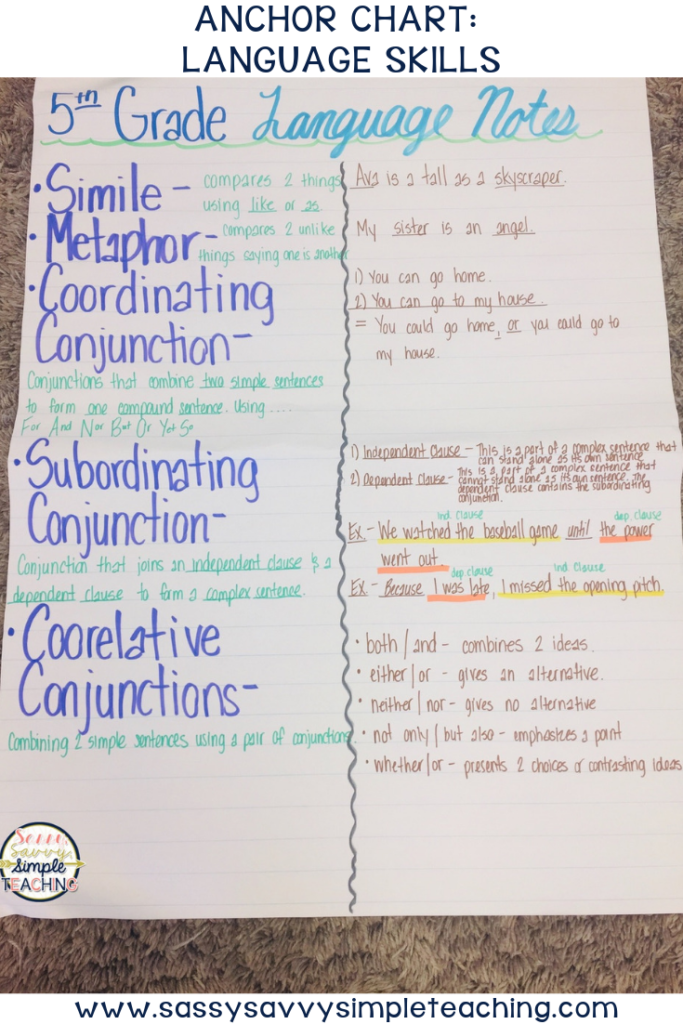 ANCHOR CHART:
LANGUAGE SKILLS
5th Grade Language Notes
• Simile - compares 2 things
using like or as
Ava is a tall as a skyscraper.
• Metaphor - compares 2 unlike
things saying one is another
My sister is an angel.
• Coordinating
Conjunction -
Conjunctions that combine two simple sentences
to form one compound sentence. Using ....
For And Nor But Or Yet So
1) You can go home.
2) You can go to my house.
= You could go home, or you could go to
my house.
• Subordinating
Conjunction -
Conjunction that joins an independent clause & a
dependent clause to form a complex sentence.
1) Independent Clause - This is a part of a complex sentence that
can stand alone as its own sentence
2) Dependent Clause - This is a part of a complex sentence that
cannot stand alone as its own sentence. The
dependent clause contains the subordinating
conjunction.
Ind. Clause dep. clause
Ex. - We watched the baseball game until the power
went out
dep. clause Ind. Clause
Ex. - Because I was late, I missed the opening pitch.
• Coorelative
Conjunctions -
Combining 2 simple sentences using a pair of conjunctions.
• both / and - combines 2 ideas.
• either / or - gives an alternative.
• neither / nor - gives no alternative
• not only / but also - emphasizes a point
• whether / or - presents 2 choices or contrasting ideas
Sassy,
Savvy,
Simple
TEACHING
www.sassysavvysimpleteaching.com